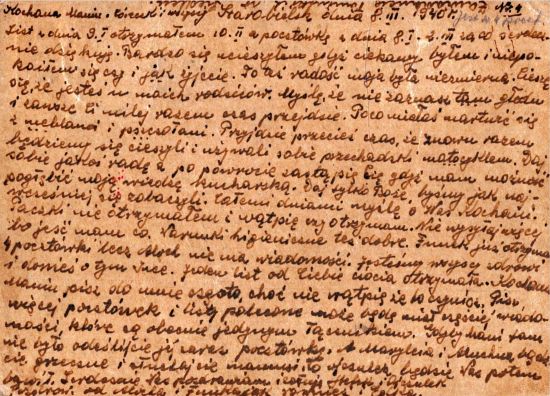 Kochana Maniu, córeczki i wszyscy Starobielsk dnia 8.III.1940 r. Nr. 4
List z dnia 9.I otrzymałem 10.II a pocztówkę z dnia 8.I - 2.III za co serdecz-
nie dziękuję. Bardzo się ucieszyłem gdyż ciekawy byłem i niepo-
koiłem się czy i jak żyjecie. To też radość moja była niezmierna. Cieszę
się że jesteś u moich rodziców. Myślę że nie zaznasz tam głodu
i zawsze Ci milej razem czas przejdzie. Poco miałaś martwić się
z meblami i pszczołami. Przyjdzie przecież czas, że znowu razem
będziemy się cieszyli i używali sobie przechadzki motocyklem. Daj
sobie jakoś radę a po powrocie zastąpię Cię gdyż mam możność
pogłębić moją wiedzę kucharską. Daj tylko Boże, byśmy jak naj-
wcześniej się zobaczyli. Całemi dniami myślę o Was Kochani.
Paczki nie otrzymałem i wątpię czy otrzymam. Nie wysyłaj więcej
bo jeść mam co. Warunki higieniczne też dobre. Franek już otrzymał
4 pocztówki lecz Moch nie ma wiadomości. Jesteśmy wszyscy zdrowi
i donieś o tym Ince. Jeden list od Ciebie ciocia otrzymała. Kochana
Maniu, pisz do mnie często, choć nie wątpię że to czynisz. Pisz
więcej pocztówek i listy polecone może będę miał częściej wiado-
mości, które są obecnie jedynym łącznikiem. Gdyby Hani tam
nie było odeślijcie jej zaraz pocztówkę. A Marylcia i Musia będą
się grzeczne i słuchają mamusi to tatuś będzie Was potem
Serdecznie Was pozdrawiam i całuję
od